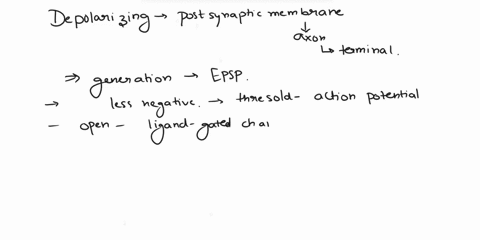 Depolarizing → postsynaptic membrane
↓
axon
↳ terminal.
⇒ generation → EPSP.
→ less negative. → thresold- action potential
- open - ligand-gated cha